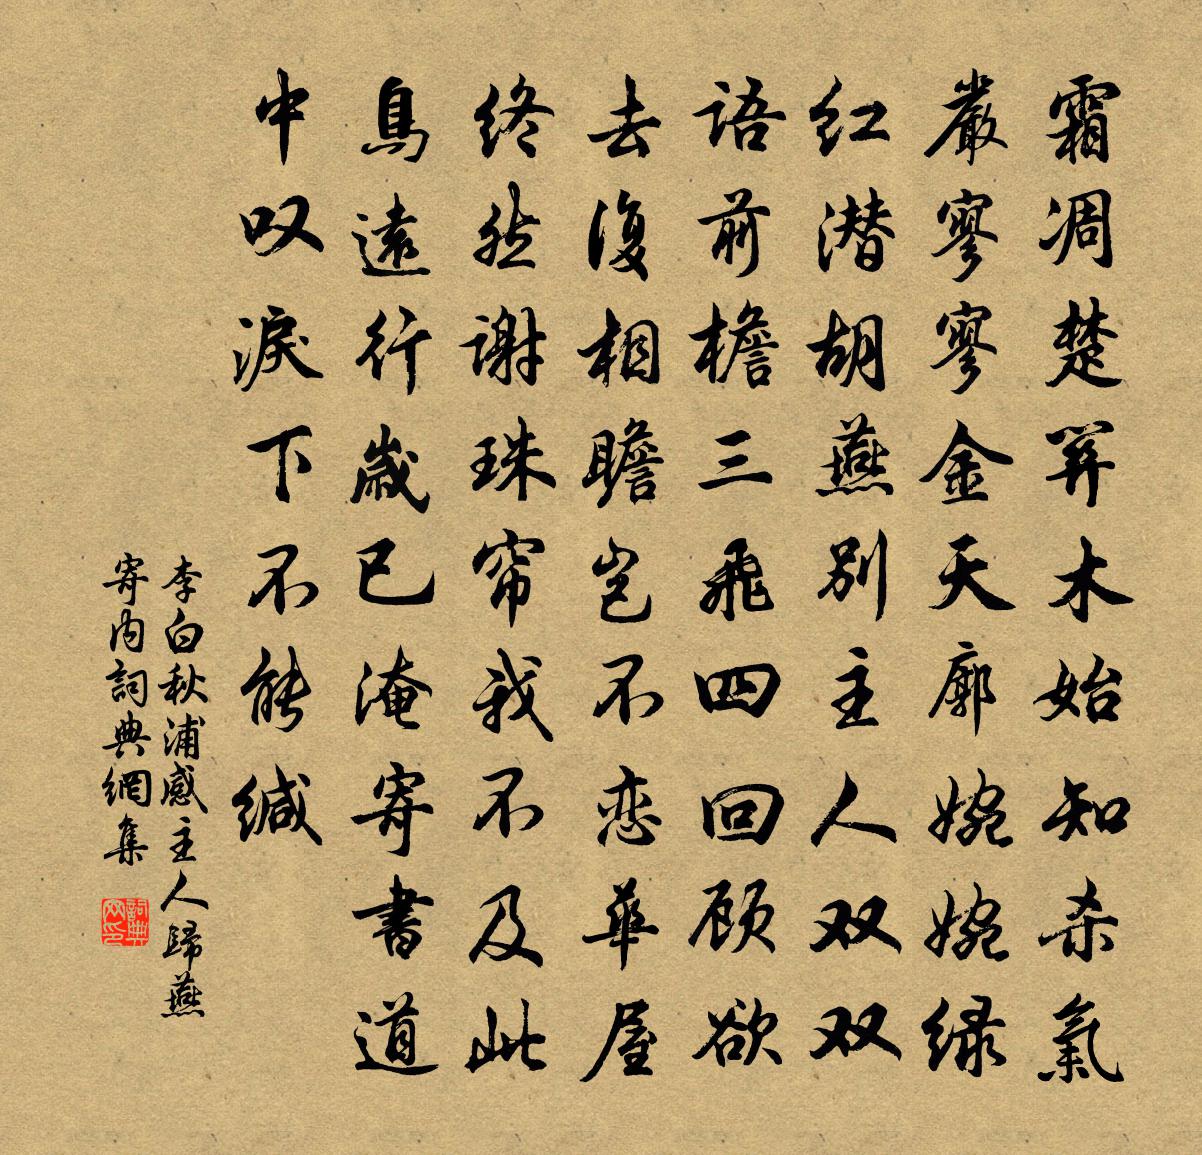 霜凋楚关木始知杀氣
嚴寥寥金天廓婉婉绿
红潜胡燕别主人双双
语前檐三飛四回顾欲
去復相瞻岂不恋華屋
终然谢珠帘我不及此
鳥遠行歳已淹寄書道
中叹淚下不能缄
李白秋浦感主人歸燕
寄内詞典網集
詞典
网印